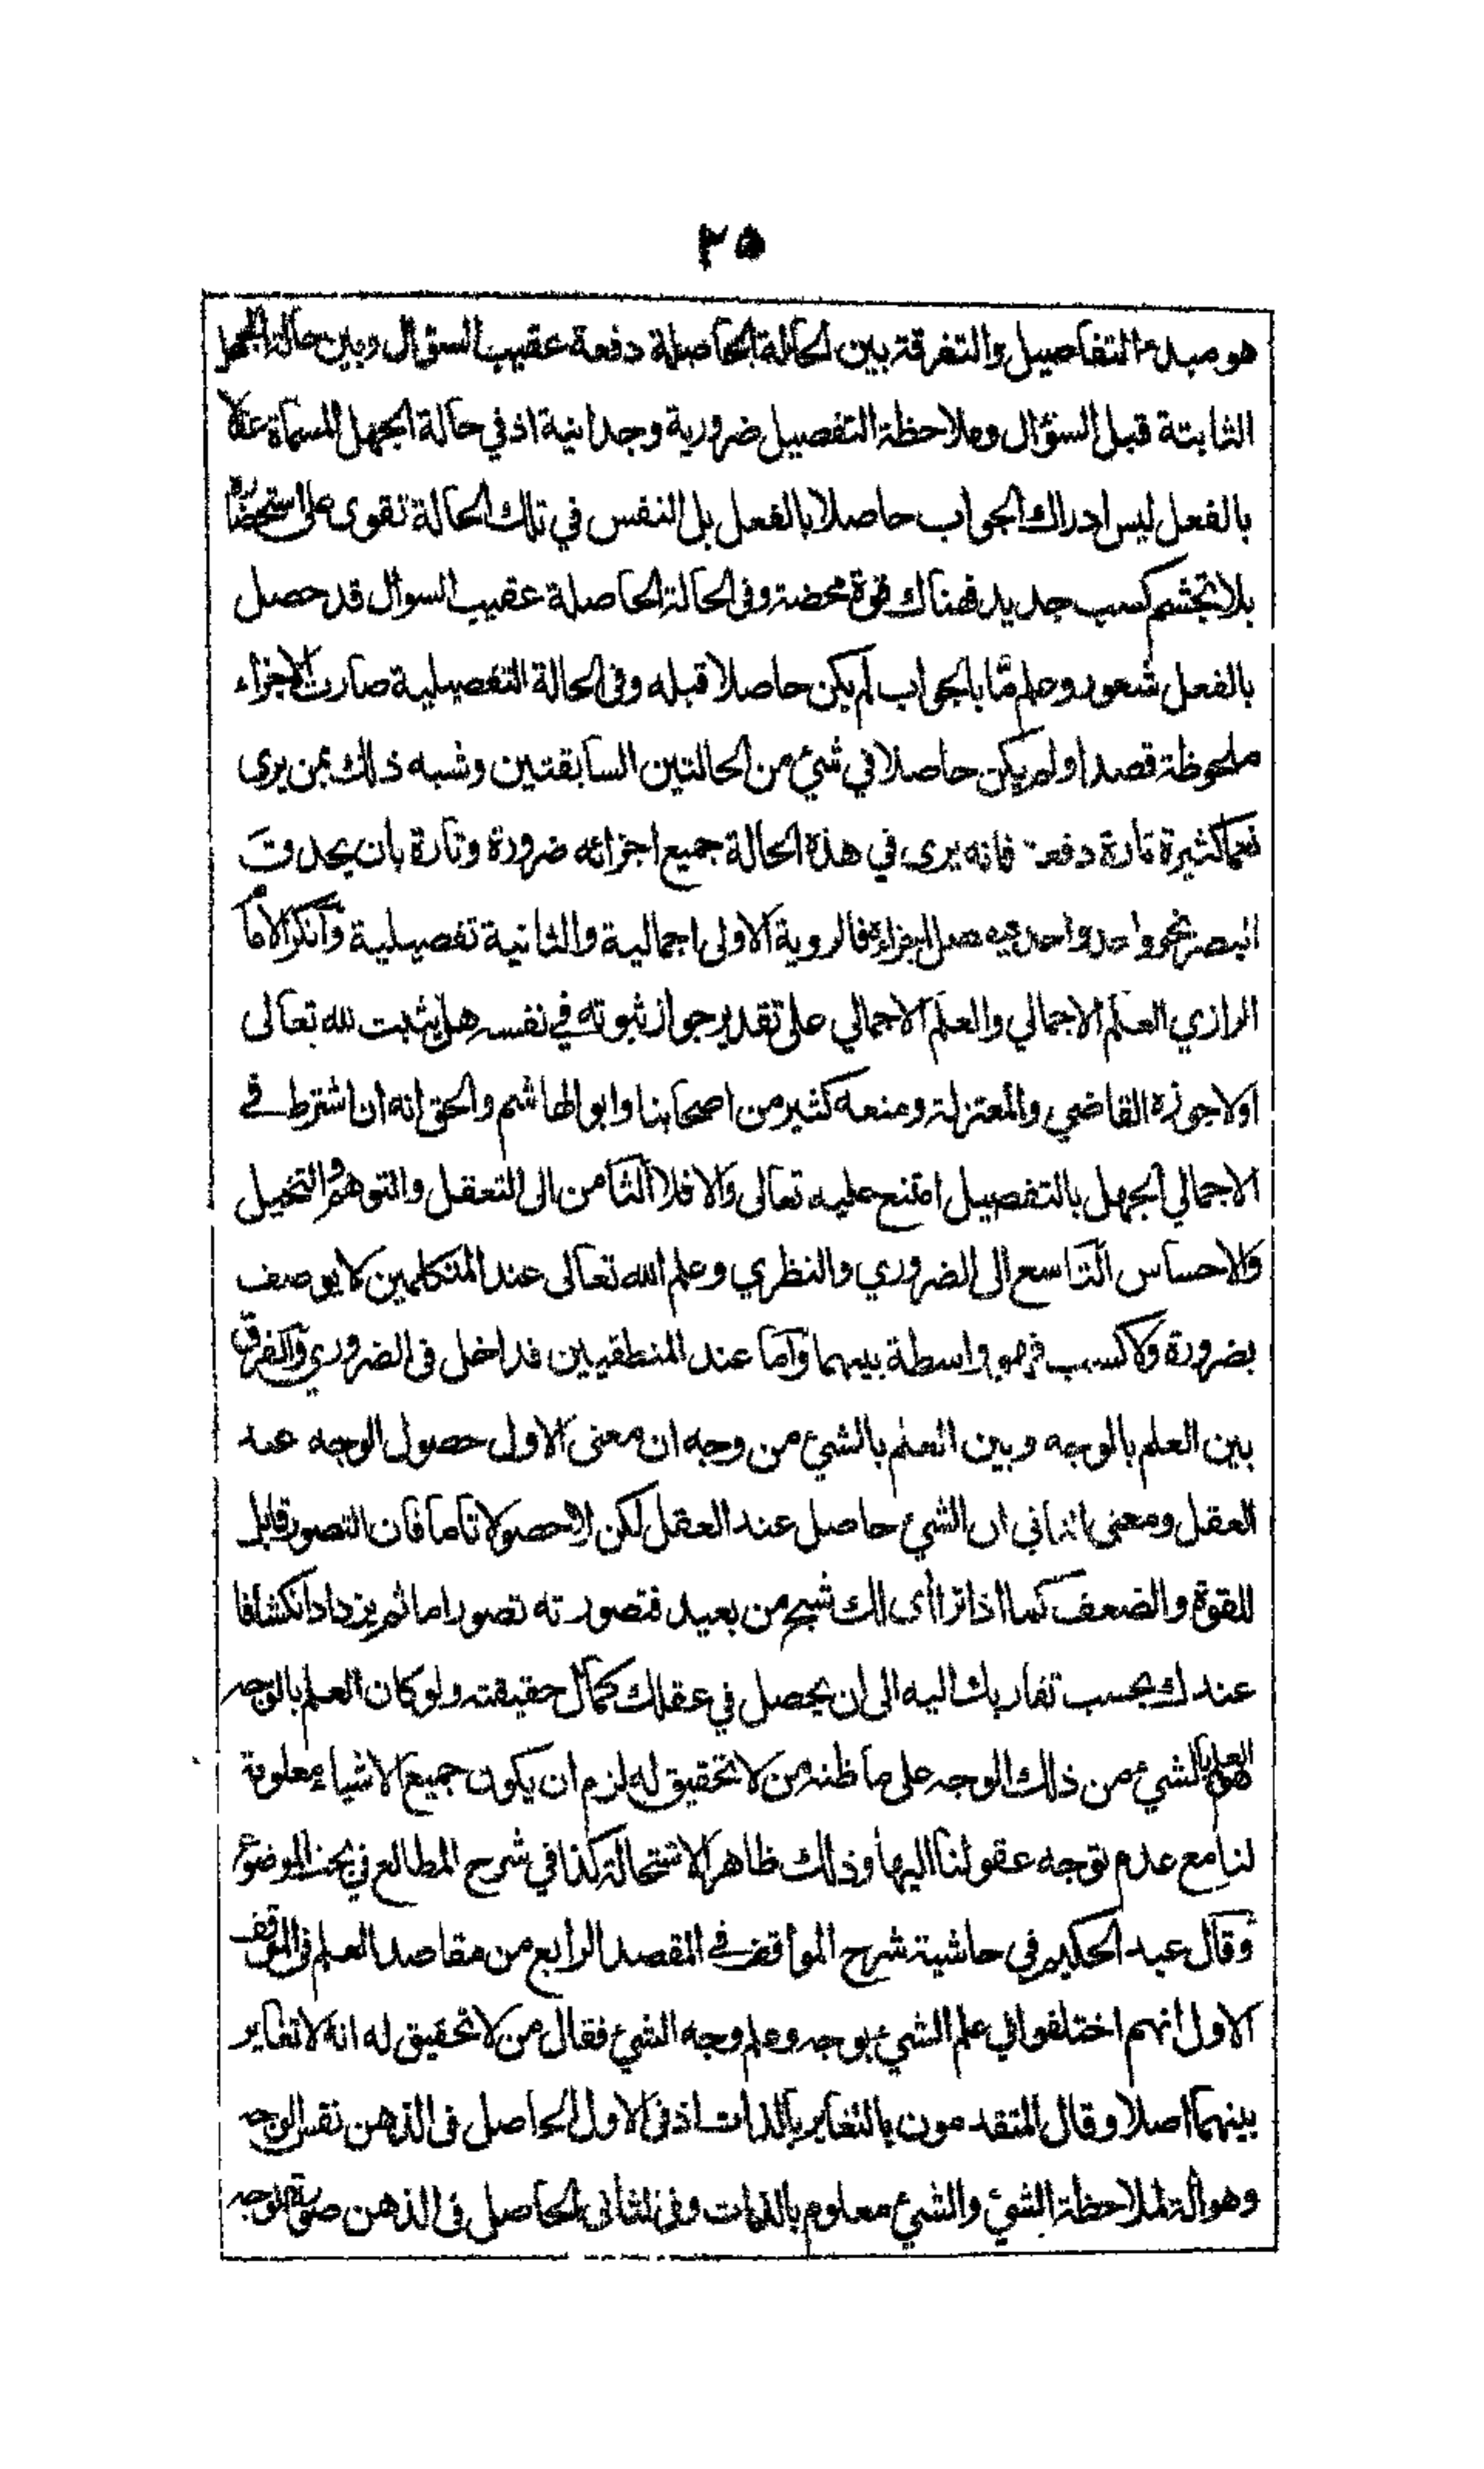 ٢٥
هو مبدء التفاصيل والتفرقة بين الحالة الحاصلة دفعة عقيب السؤال وبين حالة الجهل
الثابتة قبل السؤال وملاحظة التفصيل ضرورية وجدانية اذ في حالة الجهل المسماة عقلا
بالفعل ليس ادراك الجواب حاصلا بالفعل بل النفس في تلك الحالة تقوى على استحضاره
بلا تجشم كسب جديد فهناك قوة محضة وفي الحالة الحاصلة عقيب السوال قد حصل
بالفعل شعور وعلم مّا بالجواب لم يكن حاصلا قبله وفي الحالة التفصيلية صارت الاجزاء
ملحوظة قصدا ولم يكن حاصلا في شئ من الحالتين السابقتين وشبه ذلك بمن يرى
نعما كثيرة تارة دفعة فانه يرى في هذه الحالة جميع اجزائه ضرورة وتارة بان يحدق
البصر نحو واحد واحد فالروية الاولى اجمالية والثانية تفصيلية وآنكر الامام
الرازي العلم الاجمالي والعلم الاجمالي على تقدير جواز ثبوته في نفسه هل يثبت لله تعالى
اولا جوزه القاضي والمعتزلة ومنعه كثير من اصحابنا وابو الهاشم والحق انه ان اشترط في
الاجمالي الجهل بالتفصيل امتنع عليه تعالى والا فلا الثامن الى التعقل والتوهم والتخيل
والاحساس التاسع الى الضروري والنظري وعلم الله تعالى عند المتكلمين لا يوصف
بضرورة ولا كسب فهو واسطة بينهما وآما عند المنطقيين فداخل في الضروري والفرق
بين العلم بالوجه وبين العلم بالشئ من وجه ان معنى الاول حصول الوجه عند
العقل ومعنى الثاني ان الشئ حاصل عند العقل لكن لا حصولا تاما فان التصور قابل
للقوة والضعف كما اذا ترااى لك شبح من بعيد فتصورته تصورا ما ثم يزداد انكشافا
عندك بحسب تقاربك اليه الى ان يحصل في عقلك كمال حقيقته ولو كان العلم بالوجه
هو العلم بالشئ من ذلك الوجه على ما ظنه من لا تحقيق له لزم ان يكون جميع الاشياء معلومة
لنا مع عدم توجه عقولنا اليها وذلك ظاهر الاستحالة كذا في شرح المطالع في بحث الموضوع
وقال عبد الحكيم في حاشية شرح المواقف في المقصد الرابع من مقاصد العلم في الموقف
الاول انهم اختلفوا في علم الشئ بوجه وعلم وجه الشئ فقال من لا تحقيق له انه لا تغاير
بينهما اصلا وقال المتقدمون بالتغاير بالذات اذ في الاول الحاصل في الذهن نفس الوجه
وهو آلة لملاحظة الشئ والشئ معلوم بالذات وفي الثاني الحاصل في الذهن صورة الوجه